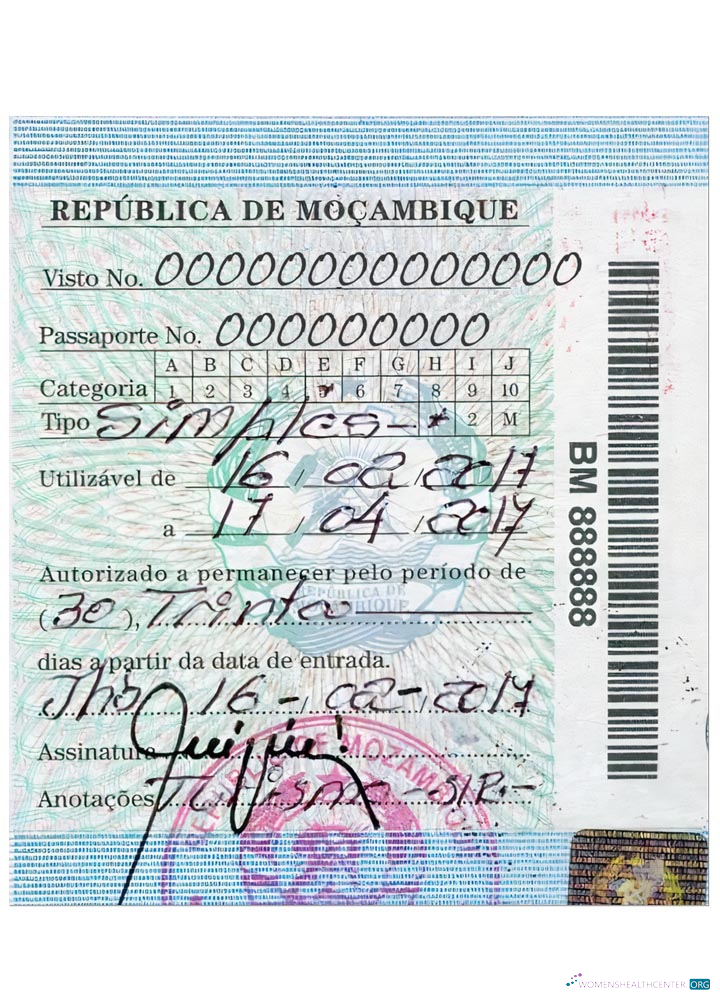 REPÚBLICA DE MOÇAMBIQUE
Visto No. 00000000000000
Passaporte No. 000000000
A B C D E F G H I J
Categoria 1 2 3 4 5 6 7 8 9 10
Tipo Simples - * 2 M
Utilizável de 16 / 02 / 2017
a 17 / 04 / 2017
Autorizado a permanecer pelo período de
(30), Trinta
dias a partir da data de entrada.
Jhb 16 - 02 - 2017
Assinatura
Anotações Turismo - S/R. -
BM 888888
REPÚBLICA DE
MOÇAMBIQUE
WOMENSHEALTHCENTER.ORG